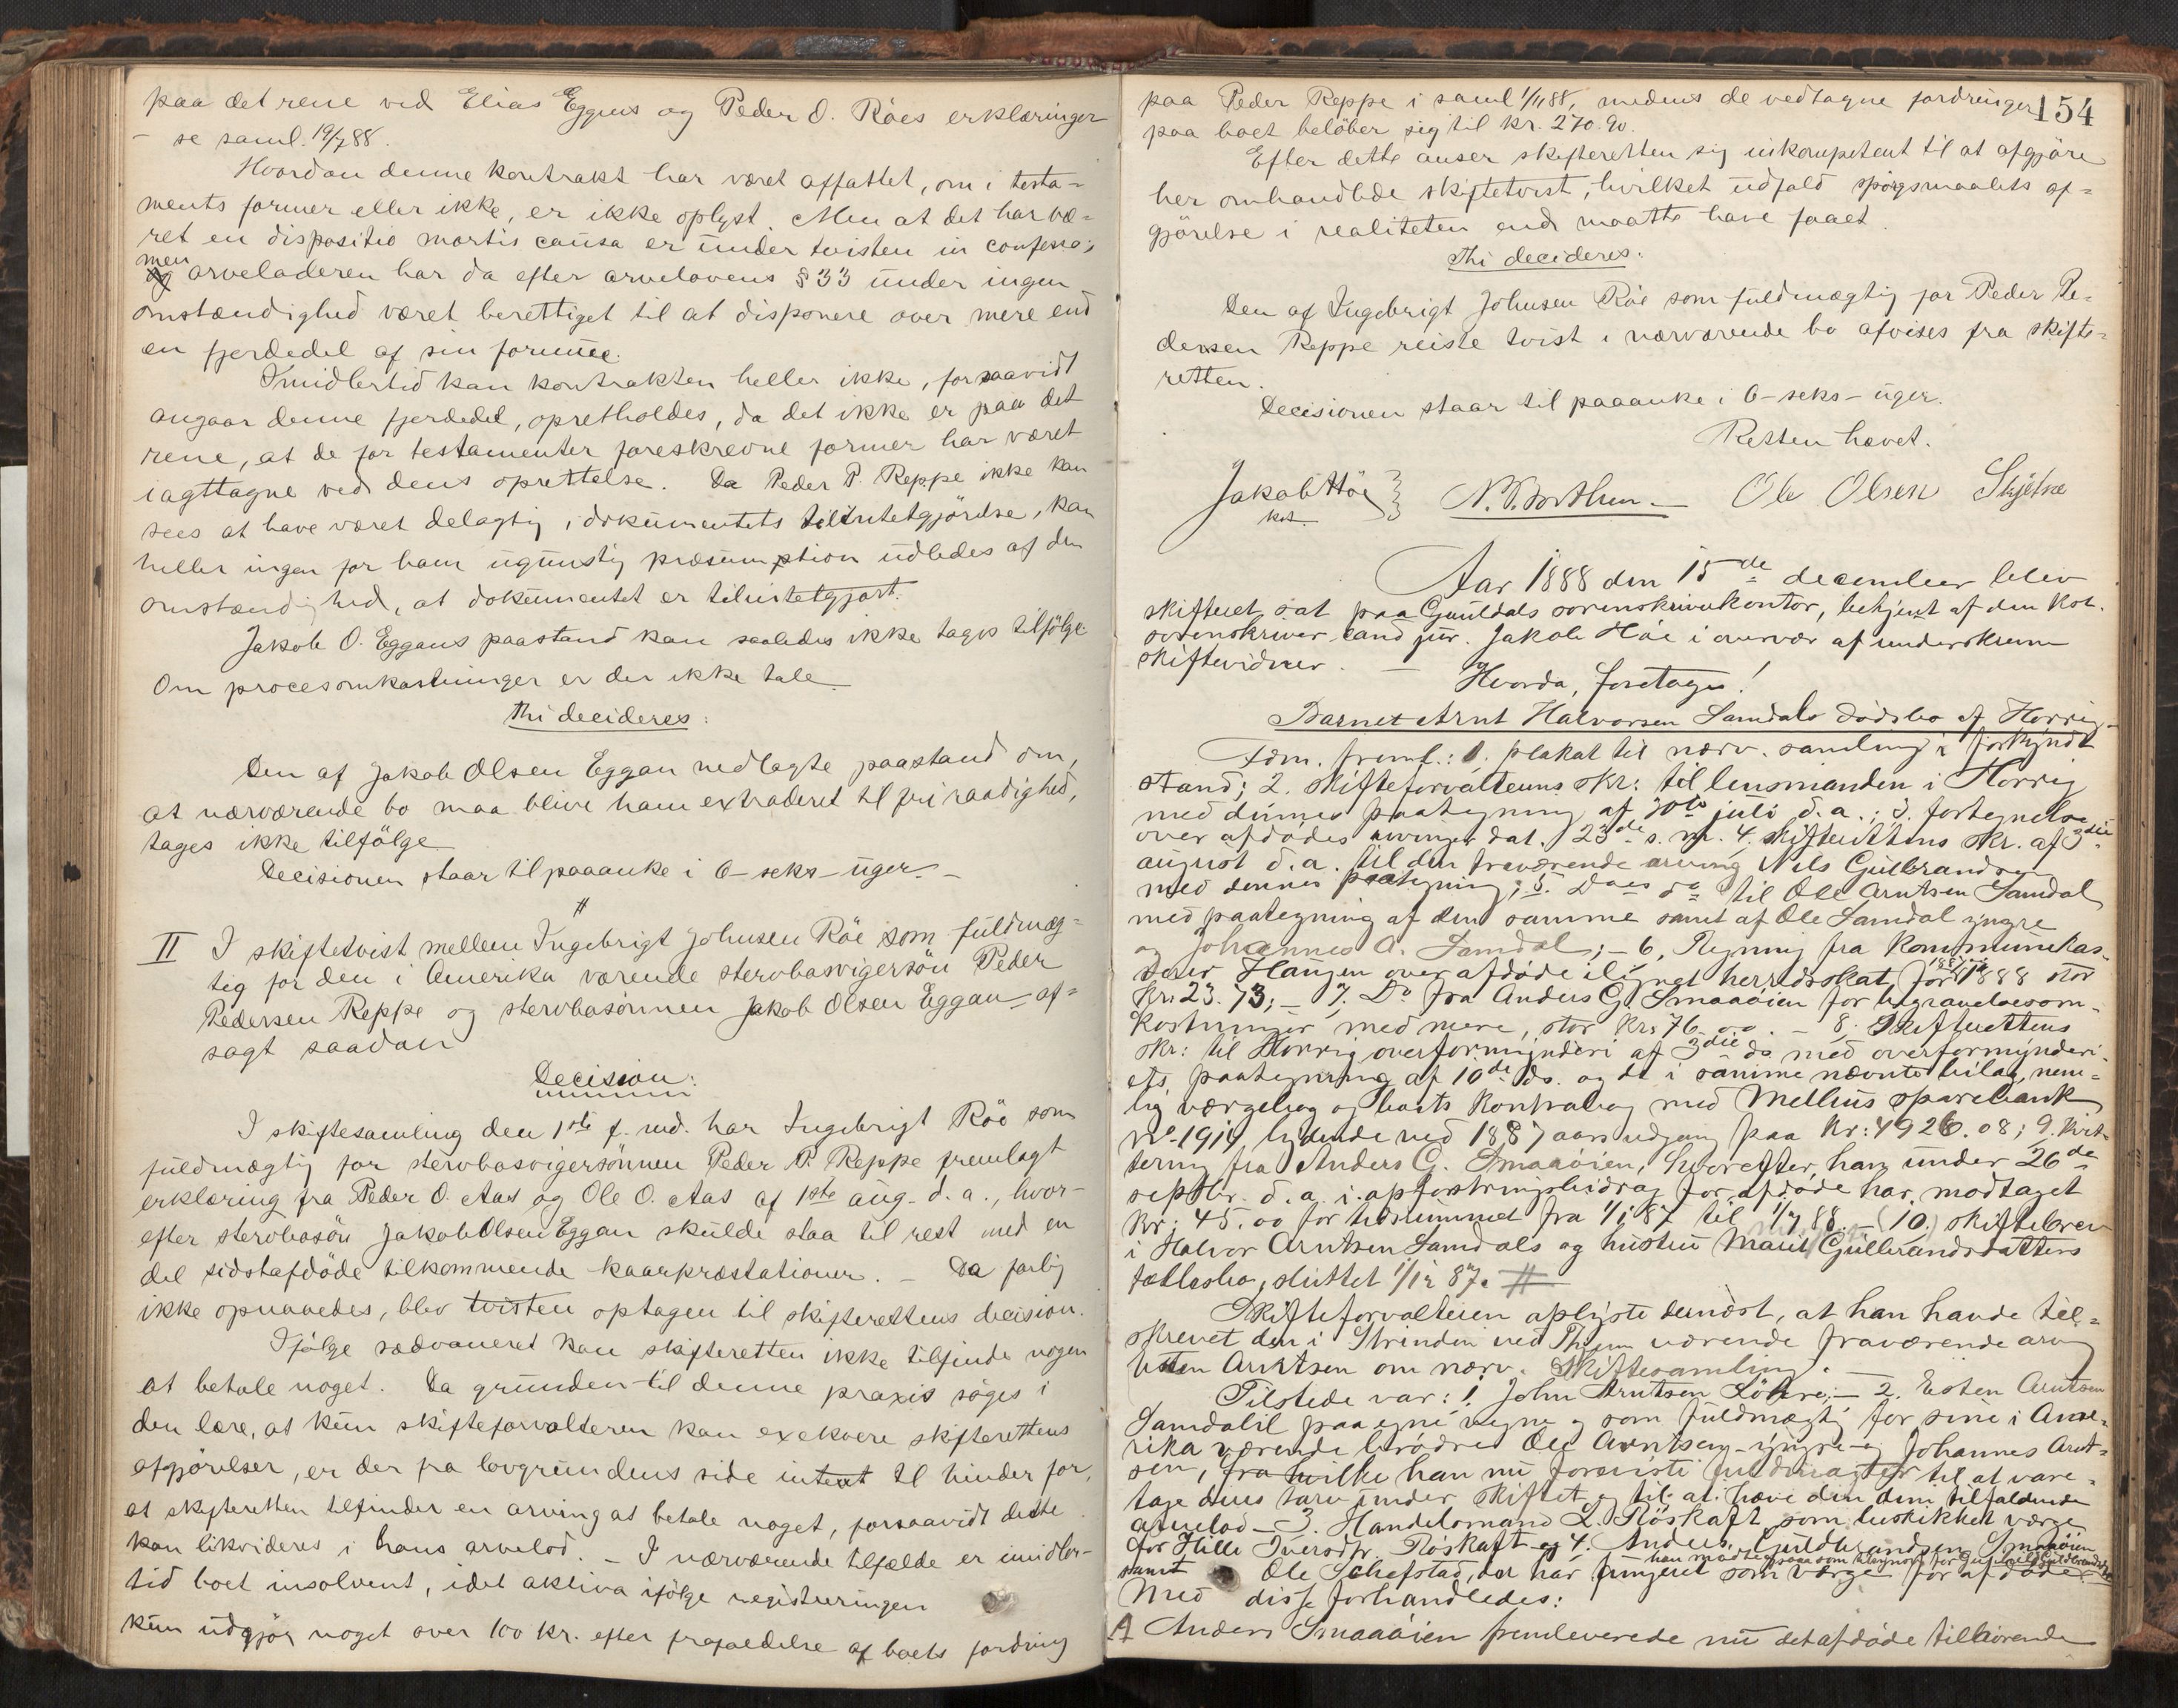 paa det rene ved Elias Eggens og Peder O. Röes erklæringer
- se saml. 19/7 88.
Hvordan denne kontrakt har været affattet, om i testa-
ments former eller ikke, er ikke oplyst. Men at det har væ-
ret en dispositio mortis causa er under tvisten in confesso;
men
og arveladeren har da efter arvelovens § 33 under ingen
omstændighed været berettiget til at disponere over mere end
en fjerdedel af sin formue.
Imidlertid kan kontrakten heller ikke, forsaavidt
angaar denne fjerdedel, opretholdes, da det ikke er paa det
rene, at de for testamenter foreskrevne former har været
iagttagne ved dens oprettelse. Da Peder P. Reppe ikke kan
sees at have været delagtig i dokumentets tilintetgjörelse, kan
heller ingen for ham ugunstig præsumption udledes af den
omstændighed, at dokumentet er tilintetgjort.
Jakob O. Eggans paastand kan saaledes ikke tages tilfölge
Om procesomkostninger er der ikke tale
Thi decideres:
Den af Jakob Olsen Eggan nedlagte paastand om,
at nærværende bo maa blive ham extraderet til fri raadighed,
tages ikke tilfölge
Decisionen staar til paaanke i 6 - seks - uger. -
II I skiftetvist mellem Ingebrigt Johnsen Röe som fuldmæg-
tig for den i Amerika værende stervbosvigersön Peder
Pedersen Reppe og stervbosönnen Jakob Olsen Eggan af-
sagt saadan
Decision:
I skiftesamling den 1ste f. md. har Ingebrigt Röe som
fuldmægtig for stervbosvigersönnen Peder P. Reppe fremlagt
erklæring fra Peder O. Aas og Ole O. Aas af 1ste aug. d. a., hvor-
efter stervbosön Jakob Olsen Eggan skulde staa til rest med en
del sidstafdöde tilkommende kaarpræstationer. - Da forlig
ikke opnaaedes, blev tvisten optagen til skifterettens decision.
Ifölge sædvaneret kan skifteretten ikke tilfinde nogen
at betale noget. Da grunden til denne praxis söges i
den lære, at kun skifteforvalteren kan exekvere skifterettens
afgjörelser, er der fra lovgrundens side intet til hinder for,
at skifteretten tilfinder en arving at betale noget, forsaavidt dette
kan likvideres i hans arvelod. - I nærværende tilfælde er imidler-
tid boet insolvent, idet aktiva ifölge registreringen
kun udgjör noget over 100 kr. efter frafaldelse af boets fordring
154
paa Peder Reppe i saml 1/11 88, medens de vedtagne fordringer
paa boet belöber sig til kr. 270.90.
Efter dette anser skifteretten sig inkompetent til at afgjöre
her omhandlede skiftetvist, hvilket udfald spörgsmaalets af-
gjörelse i realiteten end maatte have faaet.
Thi decideres:
Den af Ingebrigt Johnsen Röe som fuldmægtig for Peder Pe-
dersen Reppe reiste tvist i nærværende bo afvises fra skifte-
retten.
Decisionen staar til paaanke i 6 - seks - uger.
Retten hævet.
Jakob Höe
kst. Ole Olsen Skjetne
Aar 1888 den 15de december blev
skifteret sat paa Guuldals sorenskriverkontor, betjent af den kst.
sorenskriver cand jur. Jakob Höe i overvær af underskrevne
skiftevidner. -
Hvorda, foretoges!
Barnet Arnt Halvorsen Samdals dödsbo af Horrig.
Adm. freml.: 1. plakat til nærv. samling i forkyndt
stand; 2. Skifteforvalterens skr: til lensmanden i Horrig
med dennes paategning af 30te juli d. a.; 3. fortegnelse
over afdödes arvinger dat. 23de s. m. 4. skifterettens skr. af 3die
august d. a. til den fraværende arving Nils Gulbrandsen
med dennes paategning; 5. Do til Ole Arntsen Samdal
med paategning af den samme samt af Ole Samdal yngre
og Johannes A. Samdal; - 6, Regning fra kommunekas-
serer Haugen over afdöde ilignet herredsskat for 1887 1888 stor
Kr: 23.73; - 7. Do fra Anders G. Smaaöien for begravelsesom-
kostninger med mere, stor Kr: 76.00. - 8. Skifterettens
skr: til Horrig overformynderi af 3die ds. med overformynderi-
ets paategning af 10de ds. og de i samme nævnte bilag, nem-
lig værgebog og boets kontrabog med Melhus sparebank
No. 1914, lydende ved 1887 aars udgang paa Kr: 4926.08; 9. Kvit-
tering fra Anders G. Smaaöien, hvorefter han under 26de
septbr. d. a. i opfostringsbidrag for afdöde har modtaget
Kr: 45.00 for tidsrummet fra 1/1 87 til 1/7 88. - (10.) skiftebrev
i Halvor Arntsen Samdals og hustru Marit Gulbrandsdatters
fællesbo, sluttet 1/12 87. #
Skifteforvalteren oplyste dernæst, at han havde til-
skrevet den i Strinden ved Thjem værende fraværende arving
Esten Arntsen om nærv. skiftesamling.
Tilstede var: 1. John Arntsen Löhre; - 2. Esten Arntsen
Samdalil paa egne vegne og som fuldmægtig for sine i Ame-
rika værende brödre Ole Arntsen yngre og Johannes Arnt-
sen, fra hvilke han nu foreviste fuldmagter til at vare-
tage deres tarv under skiftet og til at hæve den dem tilfaldende
arvelod - 3. Handelsmand L. Röskaft som beskikket værge
for Hille Iversdtr. Röskaft og 4. Anders Guldbrandsen Smaaöien
han mödte ogsaa som
samt Ole Schefstad, der har fungeret som værge for afdöde
Med disse forhandledes:
A Anders Smaaöien fremleverede nu det afdöde tilhörende